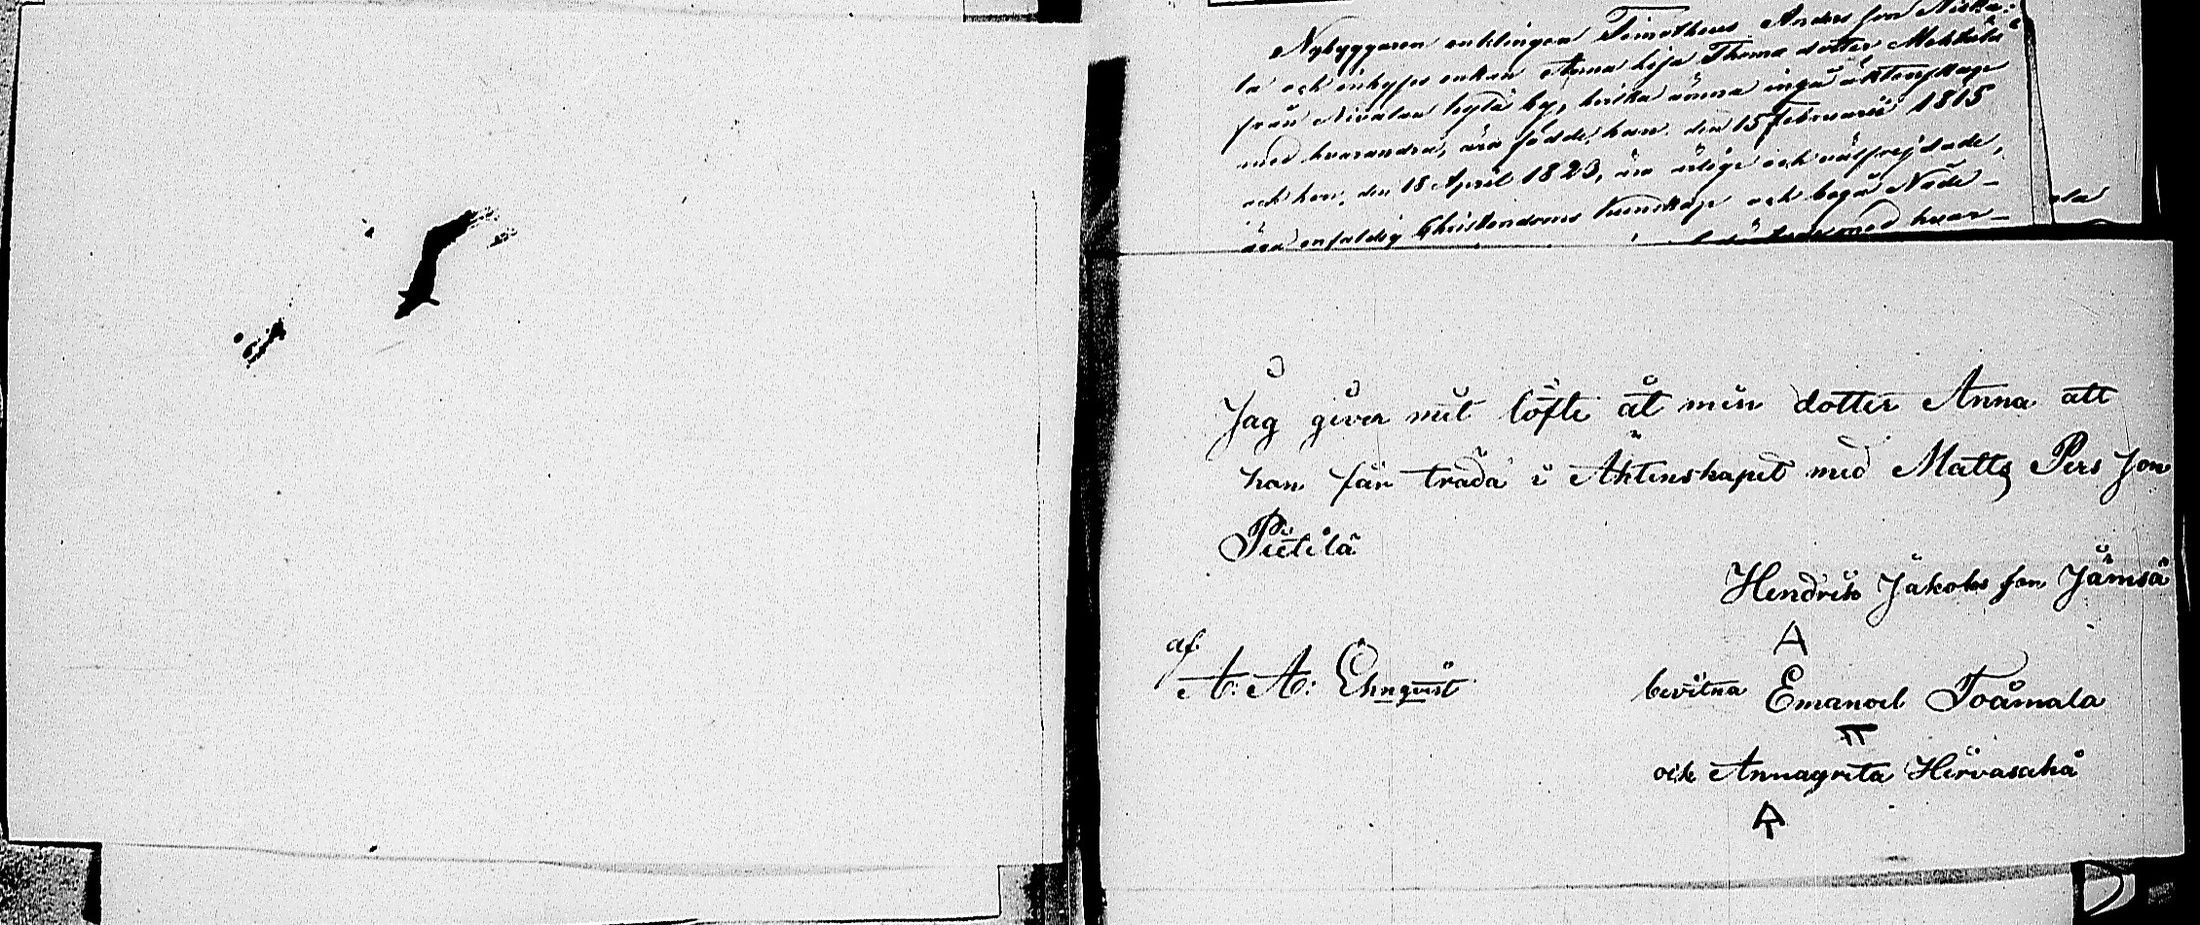 Nybyggaren enklingen Timotheus Anders son Niska-
la och inhyses enkan Anna Lisa Thoma dotter Mehtälä
från Nivalan kylä by, hvilka ämna ingå äktenskap
med hvarandra, äro födde, han den 15 Februarii 1815
och hon, den 18 April 1823, äro ärlige och välfrejdade,
äga enfaldig Christendoms kunskap och begå Nåde-
med hvar-
ola
Jag giver mit löfte åt min dotter Anna att
hon får träda i Äktenskapet med Matts Pers son
Pietilä
Hendrik Jakobs son Jämsä
A
af
A: A: Ehnqvist
bevitna Emanoel Toåmala
och Annagreta Hirvasahå